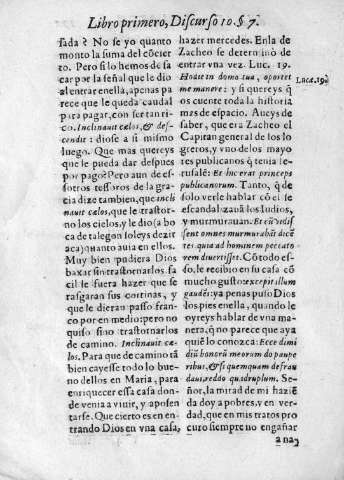 Libro primero, Discurso 10. §. 7.
sada? No se yo quanto
monto la suma del cõcier
to. Pero si lo hemos de sa
car por la señal que le dio
al entrar en ella, apenas pa
rece que le queda caudal
para pagar, con ser tan ri-
co. Inclinauit cælos, & des-
cendit: diose a si mismo
luego. Que mas quereys
que le pueda dar despues
por pago? Pero aun de es-
sotros tesoros de la gra-
cia dize tambien, que incli
nauit cælos, que le trastor-
no los cielos, y le dio (a bo
ca de talegon soleys dezir
aca) quanto auia en ellos.
Muy bien pudiera Dios
baxar sin trastornarlos fa
cil le fuera hazer que se
rasgaran sus cortinas, y
que le dieran passo fran-
co por en medio: pero no
quiso sino trastornarlos
de camino. Inclinauit cæ-
los. Para que de camino tã
bien cayesse todo lo bue-
no dellos en Maria, para
enriquecer essa casa don-
de venia a viuir, y aposen
tarse. Que cierto es en en-
trando Dios en vna casa,
hazer mercedes. En la de
Zacheo se determinò de
entrar vna vez. Luc. 19.
Hodie in domo tua, oportet
me manere: y si quereys q̃
os cuente toda la historia
mas de espacio. Aueys de
saber, que era Zacheo el
Capitan general de los lo
greros, y vno de los mayo
res publicanos q̃ tenia Ie-
rusalẽ: Et hic erat princeps
publicanorum. Tanto, q̃ de
solo verle hablar cõ el se
escandalizauã los Iudios,
y murmurauan. Et cũ vidis
sent omnes murmurabãt dicẽ
tes quia ad hominem peccato
rem diuertisset. Cõ todo es-
so, le recibio en su casa cõ
mucho gusto: excepit illum
gaudẽs: y a penas puso Dios
los pies en ella, quando le
oyreys hablar de vna ma-
nera, q̃ no parece que aya
quiẽ lo conozca: Ecce dimi
diũ bonorũ meorum do paupe
ribus, & si quemquam defrau
daui, reddo quadruplum. Se-
ñor, la mitad de mi haziẽ
da doy a pobres, y en ver-
dad, que en mis tratos pro
curo siempre no engañar
Lucæ. 19.
a na